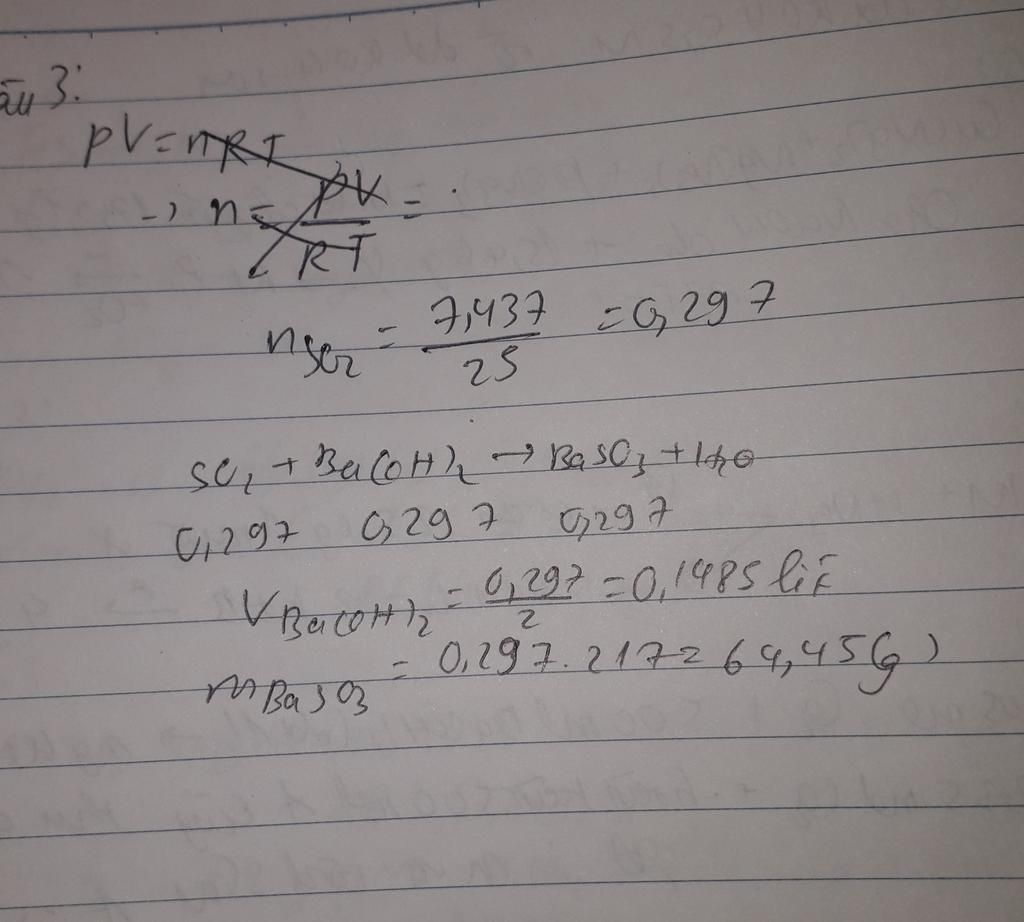 âu 3:
pV = nRT
-> n = pV / RT =
nSO2 = 7,437 / 25 = 0,297
SO2 + Ba(OH)2 → BaSO3 + H2O
0,297 0,297 0,297
VBa(OH)2 = 0,297 / 2 = 0,1485 lít
mBaSO3 = 0,297.217 = 64,45(g)